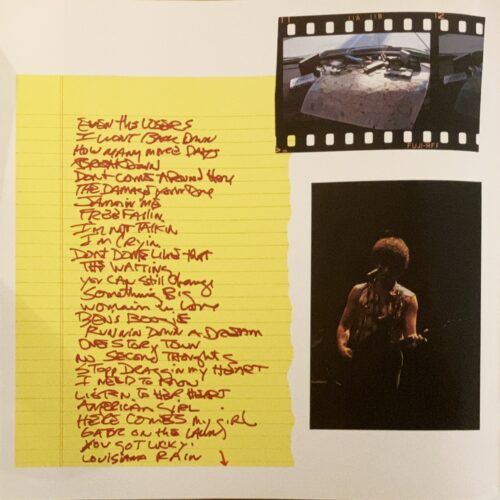 11 11A 11B
FUJI
EVEN THE LOSERS
I WONT BACK DOWN
HOW MANY MORE DAYS
BREAKDOWN
DONT COME AROUND HERE
THE DAMAGE YOUVE DONE
JAMMIN ME
FREE FALLIN
I'M NOT TALKIN
I'M CRYIN
DONT DO ME LIKE THAT
THE WAITING
YOU CAN STILL CHANGE
SOMETHING BIG
WOMAN IN LOVE
BEN'S BOOGIE
RUNNIN DOWN A DREAM
ONE STORY TOWN
NO SECOND THOUGHTS
STOP DRAGGIN MY HEART
I NEED TO KNOW
LISTEN TO HER HEART
AMERICAN GIRL
HERE COMES MY GIRL
GATOR ON THE LAWN
YOU GOT LUCKY
LOUISIANA RAIN